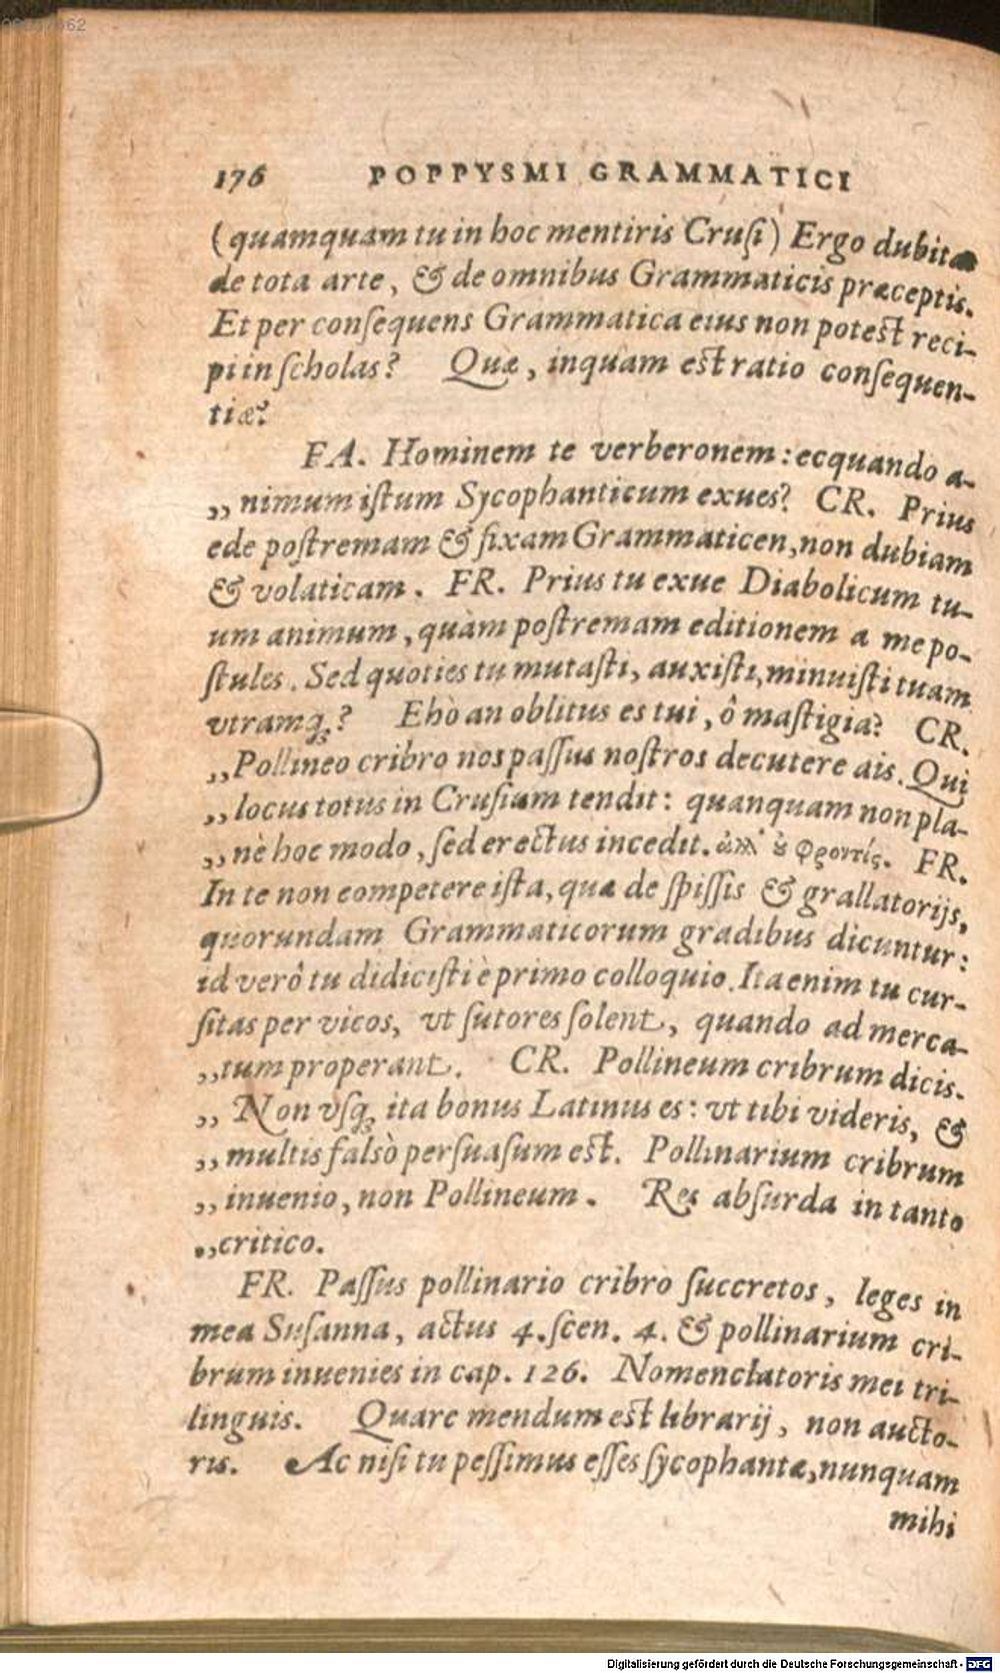 176 POPPYSMI GRAMMATICI
(quamquam tu in hoc mentiris Cruſi) Ergo dubitas
de tota arte, & de omnibus Grammaticis præceptis.
Et per conſequens Grammatica eius non poteſt reci-
pi in ſcholas? Quæ, inquam eſt ratio conſequen-
tiæ?
FA. Hominem te verberonem: ecquando a-
„ nimum iſtum Sycophanticum exues? CR. Prius
ede poſtremam & fixam Grammaticen, non dubiam
& volaticam. FR. Prius tu exue Diabolicum tu-
um animum, quàm poſtremam editionem a me po-
ſtules. Sed quoties tu mutaſti, auxiſti, minuiſti tuam
vtramq́;? Ehò an oblitus es tui, ô maſtigia? CR.
„Pollineo cribro nos paſſus noſtros decutere ais. Qui
„locus totus in Cruſium tendit: quanquam non pla-
„nè hoc modo, ſed erectus incedit. ἀλλ' οὐ φροντίς. FR.
In te non competere iſta, quæ de ſpiſſis & grallatorijs,
quorundam Grammaticorum gradibus dicuntur:
id verô tu didiciſti è primo colloquio. Ita enim tu cur-
ſitas per vicos, vt ſutores ſolent, quando ad merca-
„tum properant. CR. Pollineum cribrum dicis.
„ Non vſq́; ita bonus Latinus es: vt tibi videris, &
„multis falsò perſuaſum eſt. Pollinarium cribrum
„inuenio, non Pollineum. Res abſurda in tanto
„critico.
FR. Paſſus pollinario cribro ſuccretos, leges in
mea Suſanna, actus 4. ſcen. 4. & pollinarium cri-
brum inuenies in cap. 126. Nomenclatoris mei tri-
linguis. Quare mendum eſt librarij, non aucto-
ris. Ac niſi tu peſſimus eſſes ſycophanta, nunquam
mihi
Digitalisierung gefördert durch die Deutsche Forschungsgemeinschaft - DFG